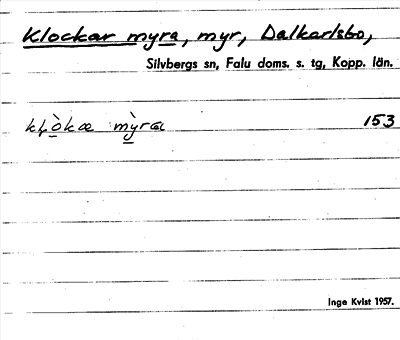 Klockar myra, myr, Dalkarlsbo,
Silvbergs sn, Falu doms. s. tg, Kopp. län.
153
Inge Kvist 1957.